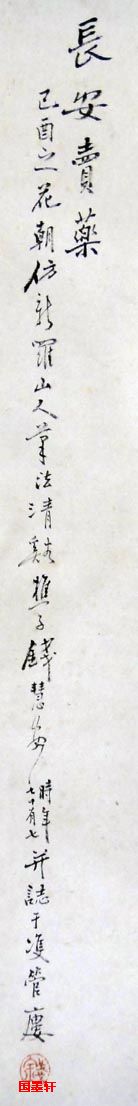 長安賣藥
己酉之花朝仿新羅山人筆法清谿樵子錢慧安時年七十有七并誌于双管廔
国墨轩